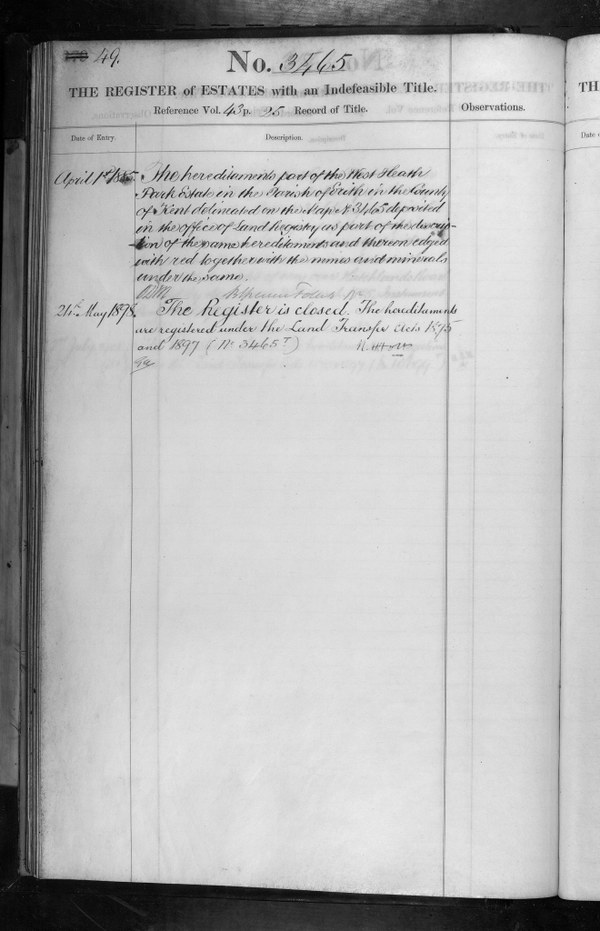 49.
No. 3465
THE REGISTER of ESTATES with an Indefeasible Title.
Reference Vol. 43 p. 25 Record of Title.
Observations.
Date of Entry.
Description.
April 1st
The hereditaments part of the West Heath
Park Estate in the Parish of Erith in the County
of Kent delineated on the Map No 3465 deposited
in the office of Land Registry as part of the descrip-
-tion of the same hereditaments and thereon edged
with red together with the mines and minerals
under the same.
24th May 1898.
The Register is closed. The hereditaments
are registered under the Land Transfer Acts 1875
and 1897 (No 3465T)
TH